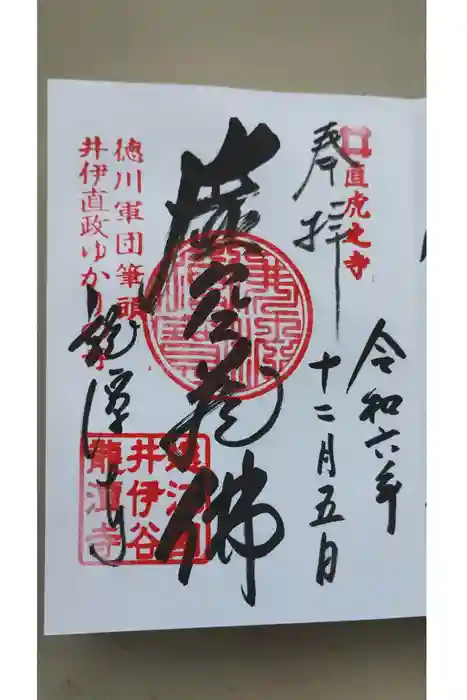 奉拝
直虎之寺
令和六年
十二月五日
虚空蔵佛
徳川軍団筆頭
井伊直政ゆかりの寺
龍潭寺
遠江国
井伊谷
龍潭寺